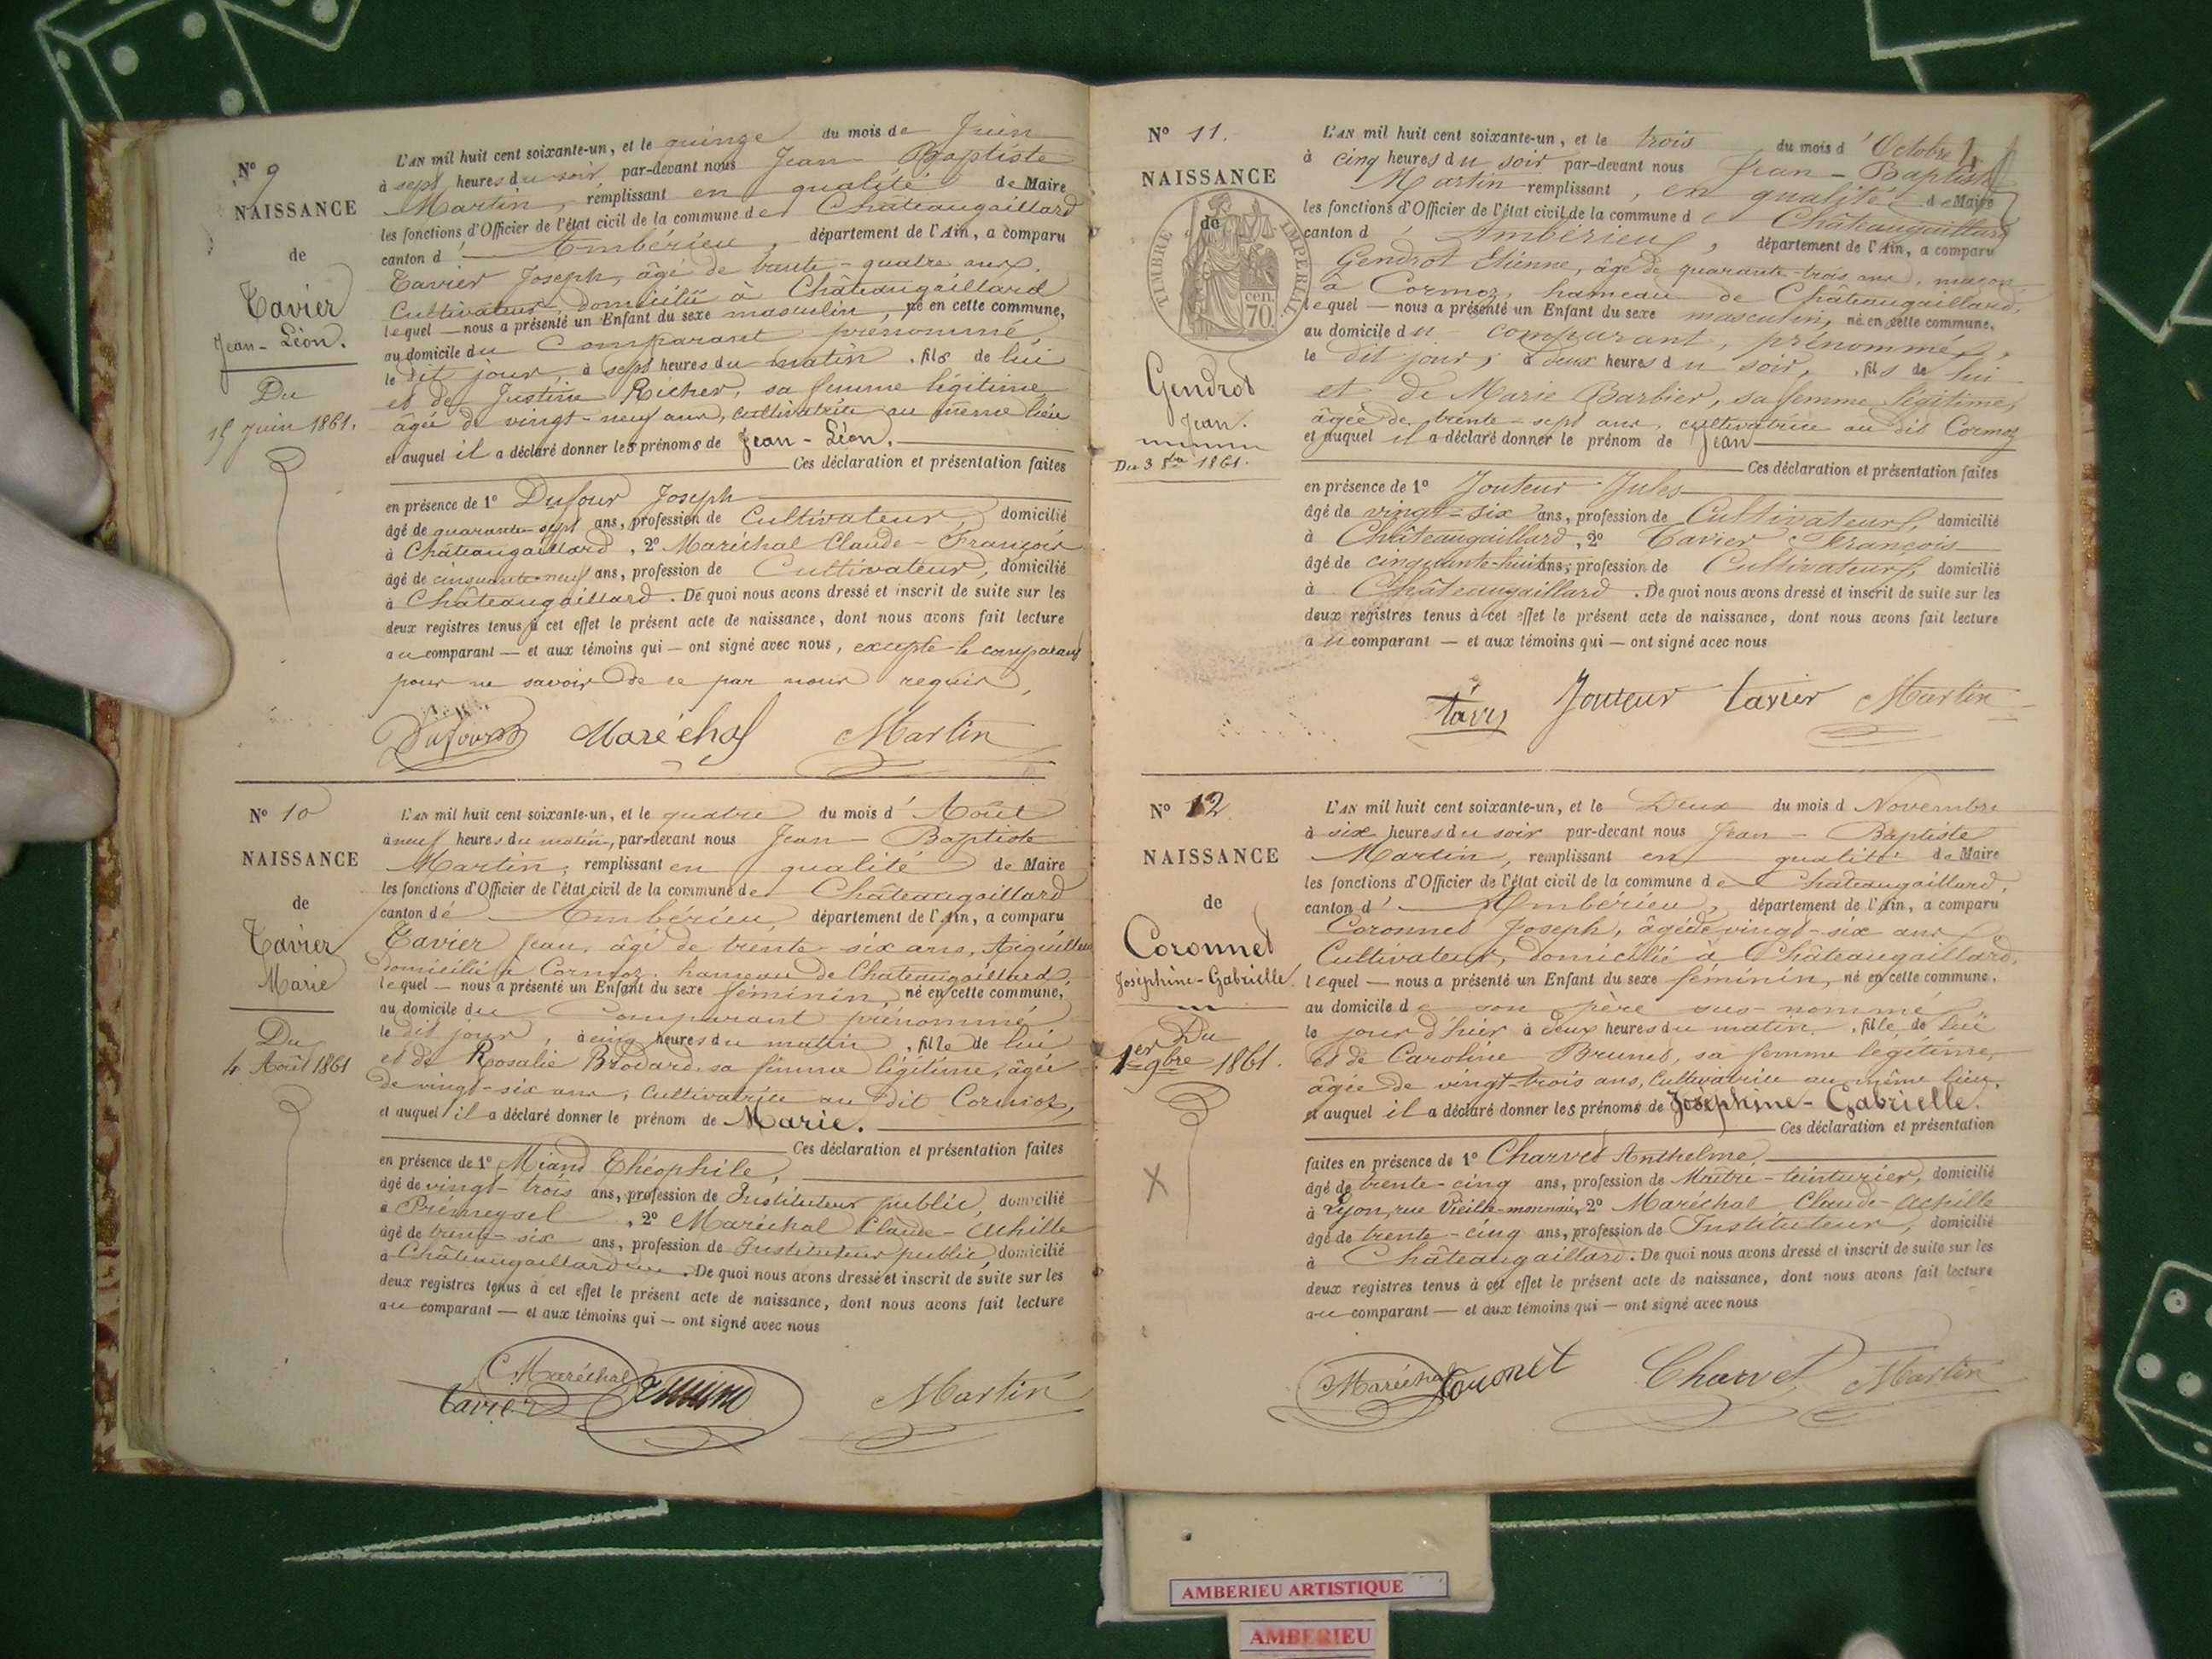 N° 9
NAISSANCE
de
Tavier
Jean-Léon.
Du
15 Juin 1861.
L'AN mil huit cent soixante-un, et le quinze du mois de Juin
à sept heures du soir par-devant nous Jean-Baptiste
Martin, remplissant en qualité de Maire
les fonctions d'Officier de l'état civil de la commune de Châteaugaillard
canton d' Ambérieu, département de l'Ain, a comparu
Tavier Joseph, âgé de trente-quatre ans,
Cultivateur, domicilié à Châteaugaillard
lequel — nous a présenté un Enfant du sexe masculin, né en cette commune,
au domicile du Comparant prénommé,
le dit jour, à sept heures du matin, fils de lui
et de Justine Richer, sa femme légitime
âgée de vingt-neuf ans, cultivatrice au même lieu
et auquel il a déclaré donner les prénoms de Jean-Léon.
Ces déclaration et présentation faites
en présence de 1° Dufour Joseph
âgé de quarante-sept ans, profession de Cultivateur, domicilié
à Châteaugaillard, 2° Maréchal Claude-François
âgé de cinquante-neuf ans, profession de Cultivateur, domicilié
à Châteaugaillard. De quoi nous avons dressé et inscrit de suite sur les
deux registres tenus à cet effet le présent acte de naissance, dont nous avons fait lecture
au comparant — et aux témoins qui — ont signé avec nous, excepté le comparant
pour ne savoir de ce par nous requis,
Dufour Maréchal Martin
N° 10
NAISSANCE
de
Tavier
Marie
Du
4 Août 1861
L'AN mil huit cent soixante-un, et le quatre du mois d' Août
à neuf heures du matin, par-devant nous Jean-Baptiste
Martin, remplissant en qualité de Maire
les fonctions d'Officier de l'état civil de la commune de Châteaugaillard
canton d' Ambérieu, département de l'Ain, a comparu
Tavier Jean, âgé de trente-six ans, Aiguilleur
domicilié à Cormoz, hameau de Châteaugaillard,
lequel — nous a présenté un Enfant du sexe féminin, né en cette commune,
au domicile du Comparant prénommé
le dit jour, à cinq heures du matin, fille de lui
et de Rosalie Brodard, sa femme légitime, âgée
de vingt-six ans, Cultivatrice au dit Cormoz,
et auquel il a déclaré donner le prénom de Marie.
Ces déclaration et présentation faites
en présence de 1° Miand Théophile,
âgé de vingt-trois ans, profession de Instituteur public, domicilié
à Prémeyzel, 2° Maréchal Claude-Achille
âgé de trente-six ans, profession de Instituteur public, domicilié
à Châteaugaillard. De quoi nous avons dressé et inscrit de suite sur les
deux registres tenus à cet effet le présent acte de naissance, dont nous avons fait lecture
au comparant — et aux témoins qui — ont signé avec nous
C. Maréchal
Tavier Martin
N° 11.
NAISSANCE
de
TIMBRE IMPERIAL
70 cen.
Gendrot
Jean.
Du 3 8bre 1861.
L'AN mil huit cent soixante-un, et le trois du mois d' Octobre
à cinq heures du soir par-devant nous Jean-Baptiste
Martin remplissant, en qualité de Maire
les fonctions d'Officier de l'état civil de la commune de Châteaugaillard
canton d' Ambérieu, département de l'Ain, a comparu
Gendrot Etienne, âgé de quarante-trois ans, maçon
à Cormoz, hameau de Châteaugaillard,
lequel — nous a présenté un Enfant du sexe masculin, né en cette commune,
au domicile du comparant, prénommé,
le dit jour, à deux heures du soir, fils de lui
et de Marie Barbier, sa femme légitime,
âgée de trente-sept ans, cultivatrice au dit Cormoz
et auquel il a déclaré donner le prénom de Jean
Ces déclaration et présentation faites
en présence de 1° Jouteur Jules
âgé de vingt-six ans, profession de Cultivateur, domicilié
à Châteaugaillard, 2° Tavier François
âgé de cinquante-huit ans, profession de Cultivateur, domicilié
à Châteaugaillard. De quoi nous avons dressé et inscrit de suite sur les
deux registres tenus à cet effet le présent acte de naissance, dont nous avons fait lecture
au comparant — et aux témoins qui — ont signé avec nous
Jouteur tavier Martin
N° 12.
NAISSANCE
de
Coronnet
Joséphine-Gabrielle.
Du
1er 9bre 1861.
X
L'AN mil huit cent soixante-un, et le Deux du mois d Novembre
à six heures du soir par-devant nous Jean-Baptiste
Martin, remplissant en qualité de Maire
les fonctions d'Officier de l'état civil de la commune de Châteaugaillard,
canton d' Ambérieu, département de l'Ain, a comparu
Coronnet Joseph, âgé de vingt-six ans
Cultivateur, domicilié à Châteaugaillard,
lequel — nous a présenté un Enfant du sexe féminin, né en cette commune,
au domicile de son père sus-nommé
le jour d'hier à deux heures du matin, fille de lui
et de Caroline Brunet, sa femme légitime,
âgée de vingt-trois ans, Cultivatrice au même lieu,
et auquel il a déclaré donner les prénoms de Joséphine-Gabrielle.
Ces déclaration et présentation
faites en présence de 1° Charvet Anthelme,
âgé de trente-cinq ans, profession de Maître-teinturier, domicilié
à Lyon, rue Vieille-monnaie, 2° Maréchal Claude-Achille
âgé de trente-cinq ans, profession de Instituteur, domicilié
à Châteaugaillard. De quoi nous avons dressé et inscrit de suite sur les
deux registres tenus à cet effet le présent acte de naissance, dont nous avons fait lecture
au comparant — et aux témoins qui — ont signé avec nous
Maréchal Coronet Charvet Martin
AMBERIEU ARTISTIQUE
AMBERIEU